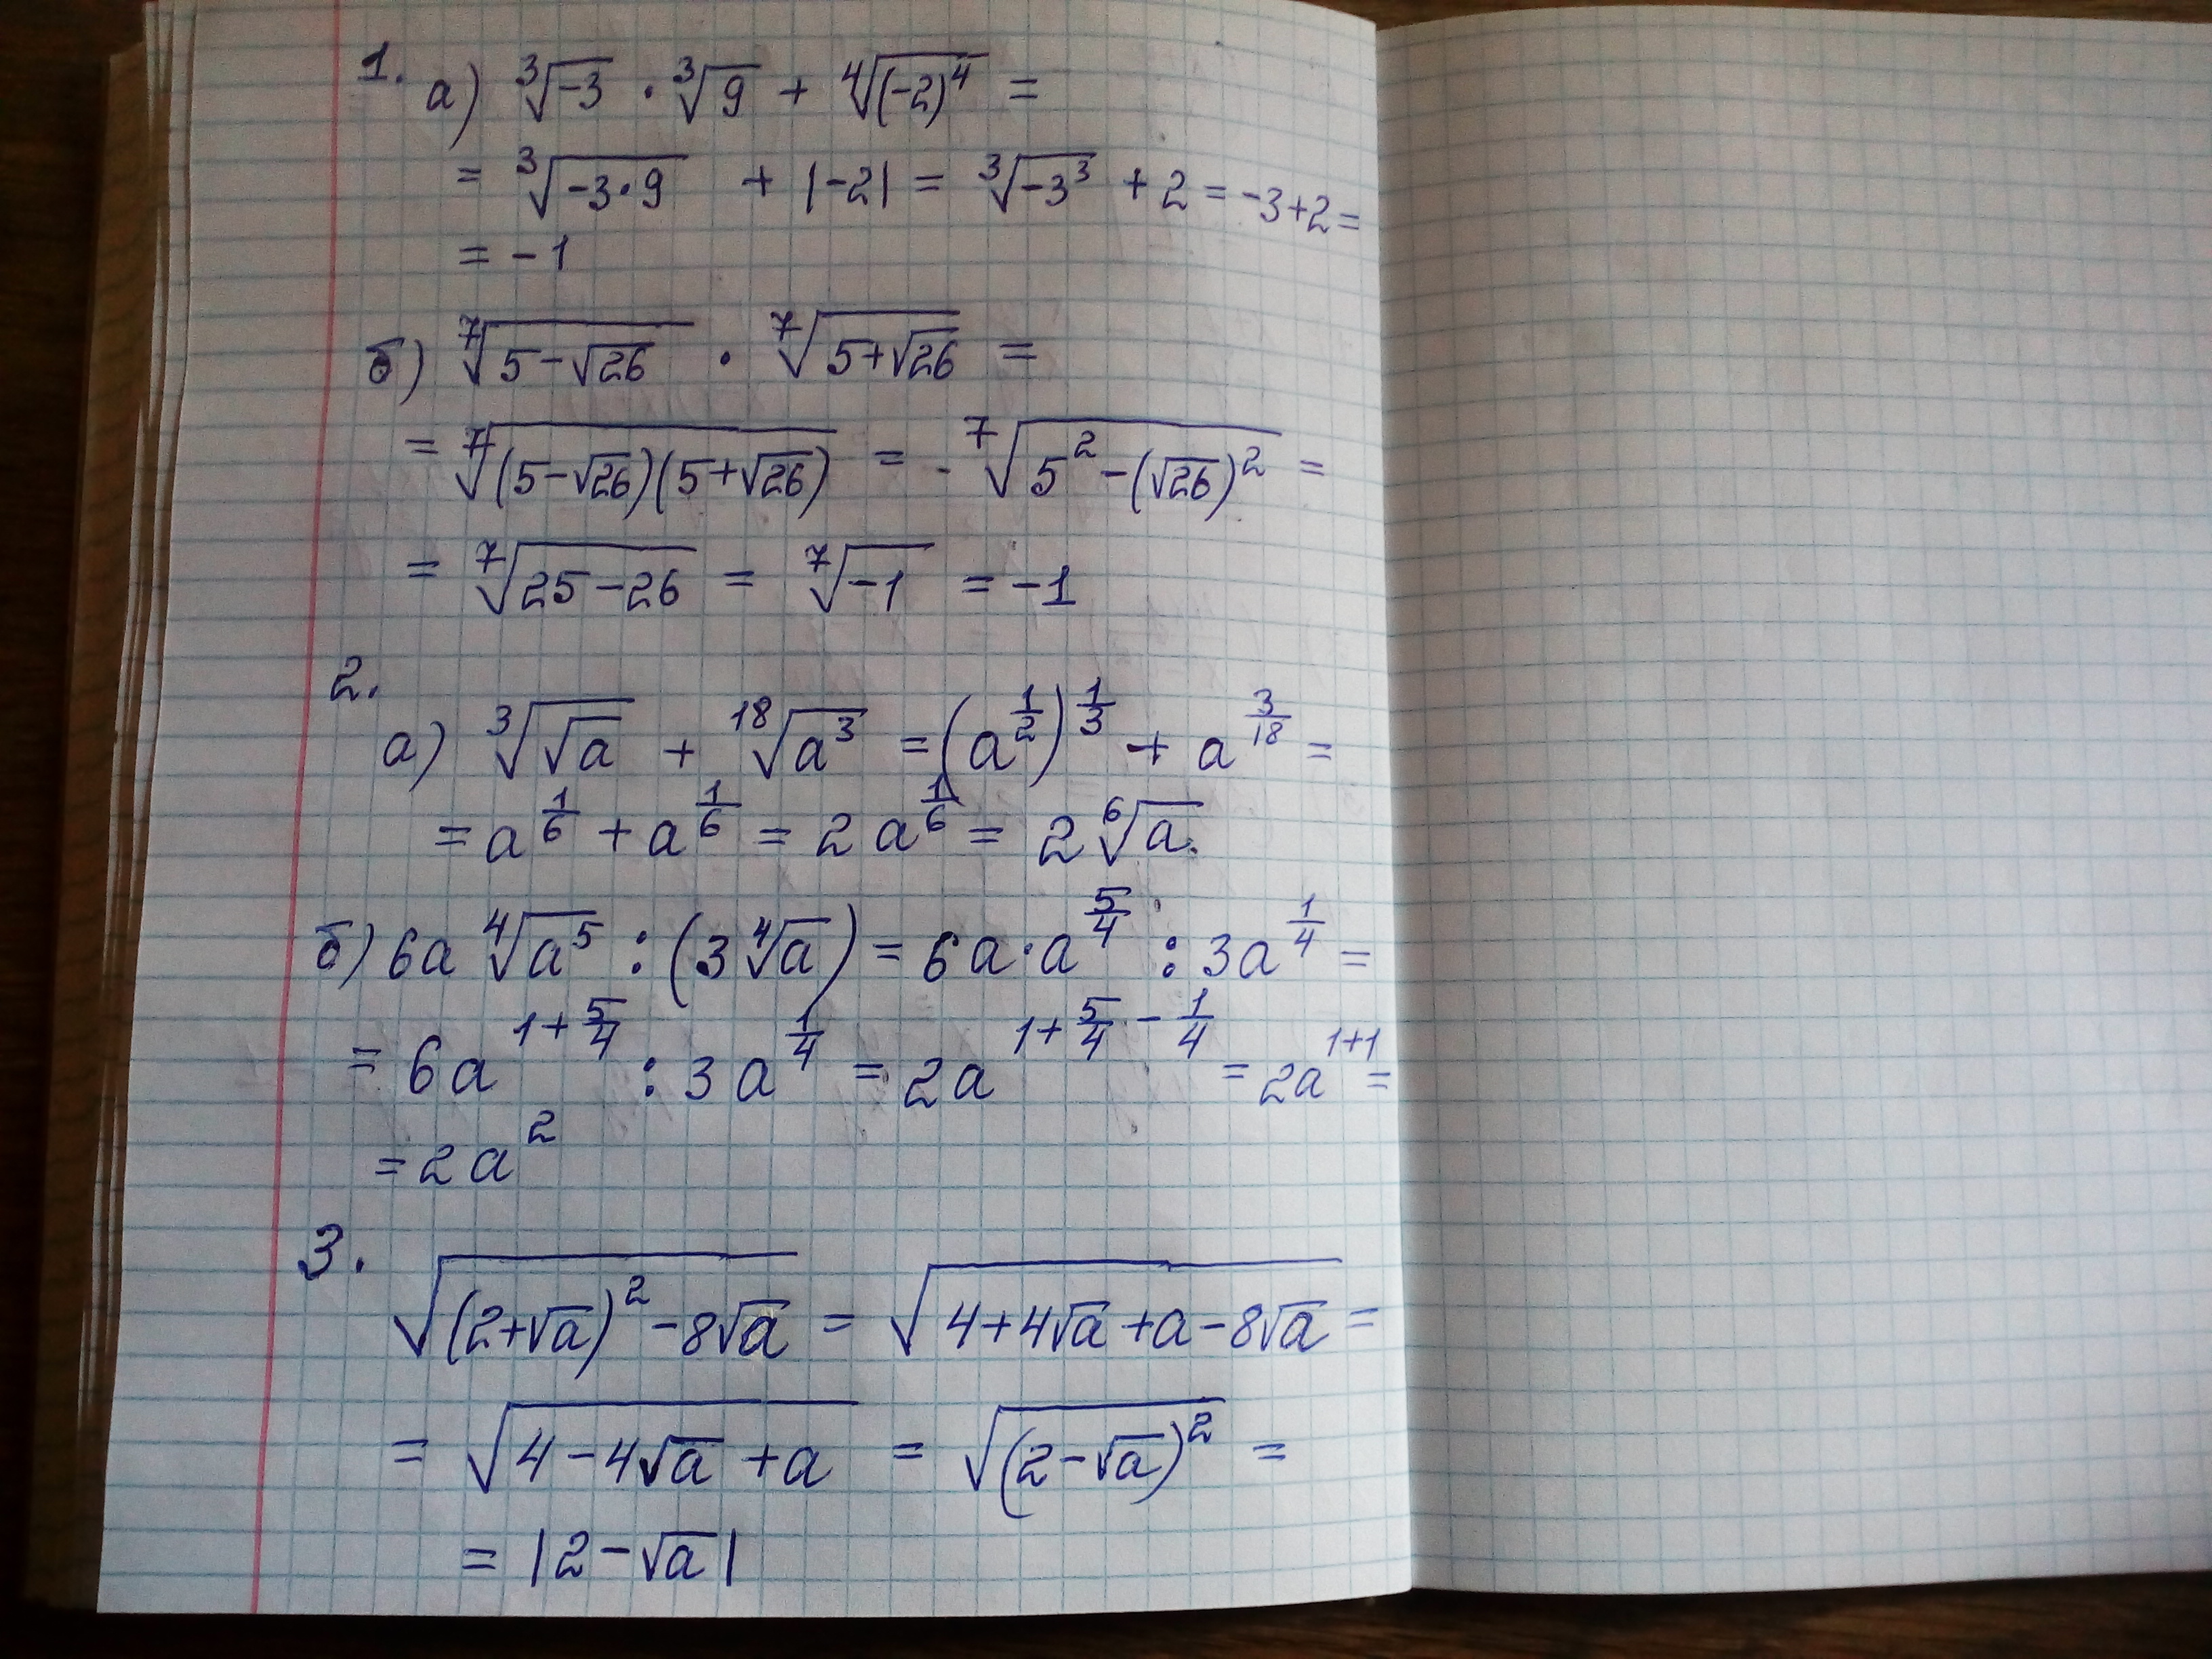 1. а) ∛(-3) · ∛9 + ∜((-2)⁴) =
= ∛(-3·9) + |-2| = ∛(-3³) + 2 = -3+2 =
= -1
б) ⁷√(5-√26) · ⁷√(5+√26) =
= ⁷√((5-√26)(5+√26)) = - ⁷√(5²-(√26)²) =
= ⁷√(25-26) = ⁷√(-1) = -1
2.
а) ∛(√a) + ¹⁸√(a³) = (a^(1/2))^(1/3) + a^(3/18) =
= a^(1/6) + a^(1/6) = 2a^(1/6) = 2 ⁶√a.
б) 6a ∜(a⁵) : (3∜a) = 6a·a^(5/4) : 3a^(1/4) =
= 6a^(1+5/4) : 3a^(1/4) = 2a^(1+5/4-1/4) = 2a^(1+1) =
= 2a²
3.
√((2+√a)²-8√a) = √(4+4√a+a-8√a) =
= √(4-4√a+a) = √((2-√a)²) =
= |2-√a|